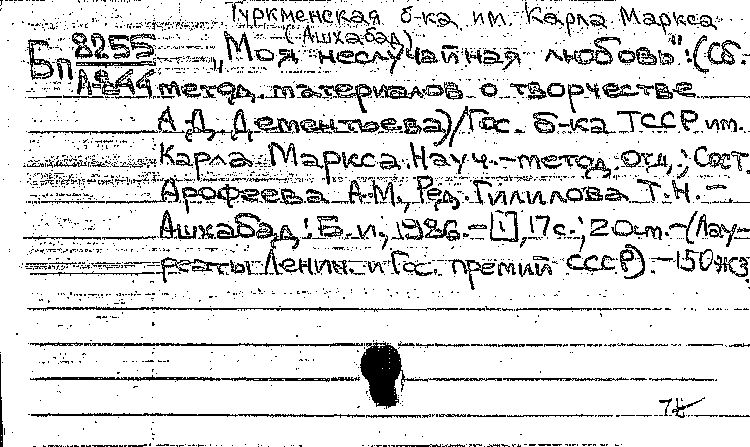 Туркменская б-ка им. Карла Маркса
(Ашхабад)
Бп 8255 „Моя неслучайная любовь": (Сб.
метод. материалов о творчестве
А.Д. Дементьева) / Гос. б-ка ТССР им.
Карла Маркса. Науч.-метод. отд.; Сост.
Арофеева А.М., Ред. Гилилова Т.Н. –
Ашхабад: Б.и., 1986. – [1], 17 с.; 20 см. – (Лау-
реаты Ленин. и Гос. премий СССР). – 150 экз.